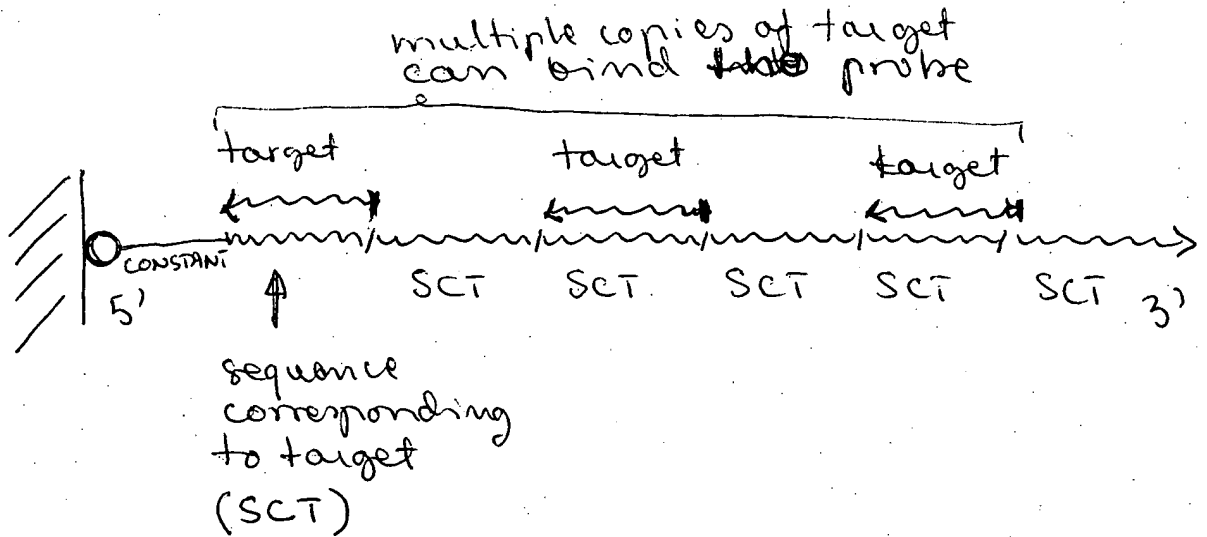 multiple copies of target
can bind probe
target target target
CONSTANT
5' SCT SCT SCT SCT SCT 3'
sequence
corresponding
to target
(SCT)